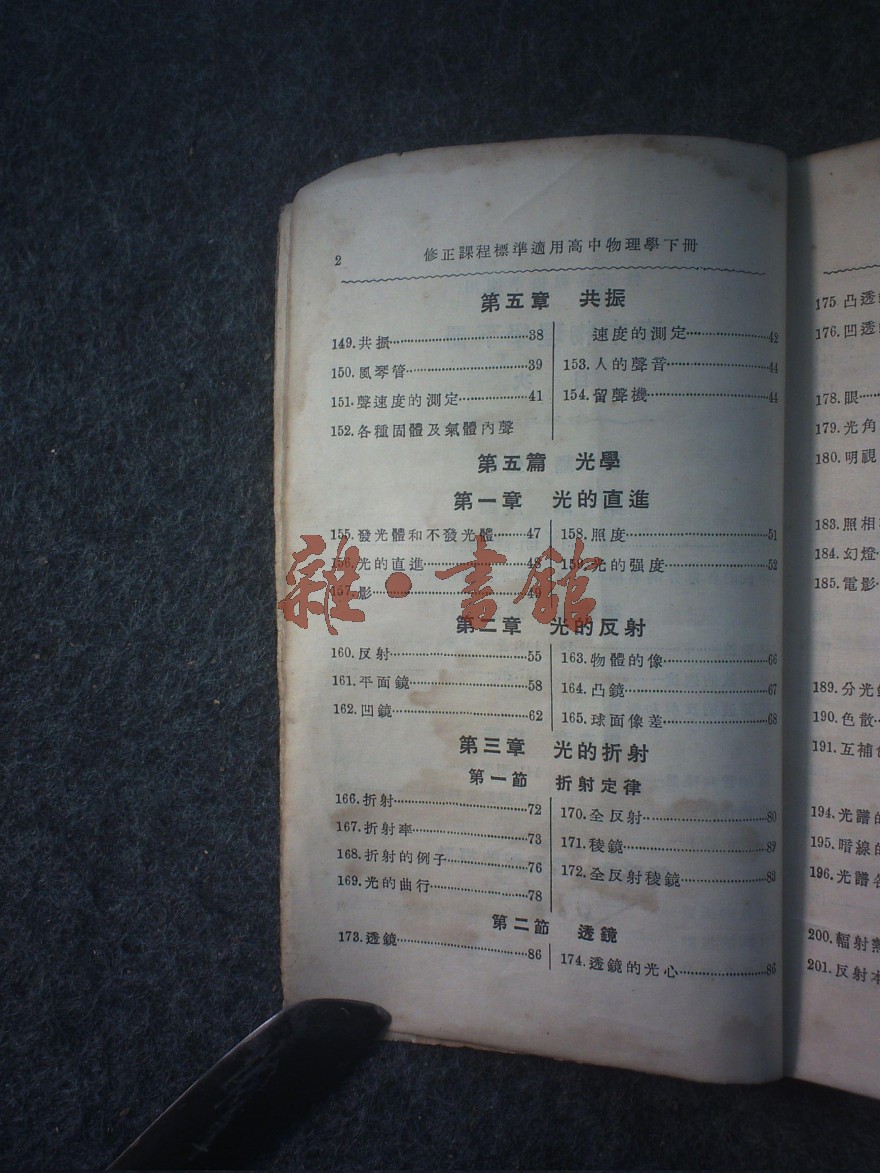 2
修正課程標準適用高中物理學下冊
第五章 共振
149.共振……38
150.風琴管……39
151.聲速度的測定……41
152.各種固體及氣體內聲
速度的測定……42
153.人的聲音……44
154.留聲機……44
第五篇 光學
第一章 光的直進
155.發光體和不發光體……47
156.光的直進……48
157.影……49
158.照度……51
159.光的强度……52
雜·書館
第二章 光的反射
160.反射……55
161.平面鏡……58
162.凹鏡……62
163.物體的像……66
164.凸鏡……67
165.球面像差……68
第三章 光的折射
第一節 折射定律
166.折射……72
167.折射率……73
168.折射的例子……76
169.光的曲行……78
170.全反射……80
171.稜鏡……
172.全反射稜鏡……83
第二節 透鏡
173.透鏡……86
174.透鏡的光心……86
175 凸透
176.凹透
178.眼……
179.光角
180.明視
183.照相
184.幻燈
185.電影
189.分光
190.色散
191.互補
194.光譜
195.暗線
196.光譜
200.輻射
201.反射本